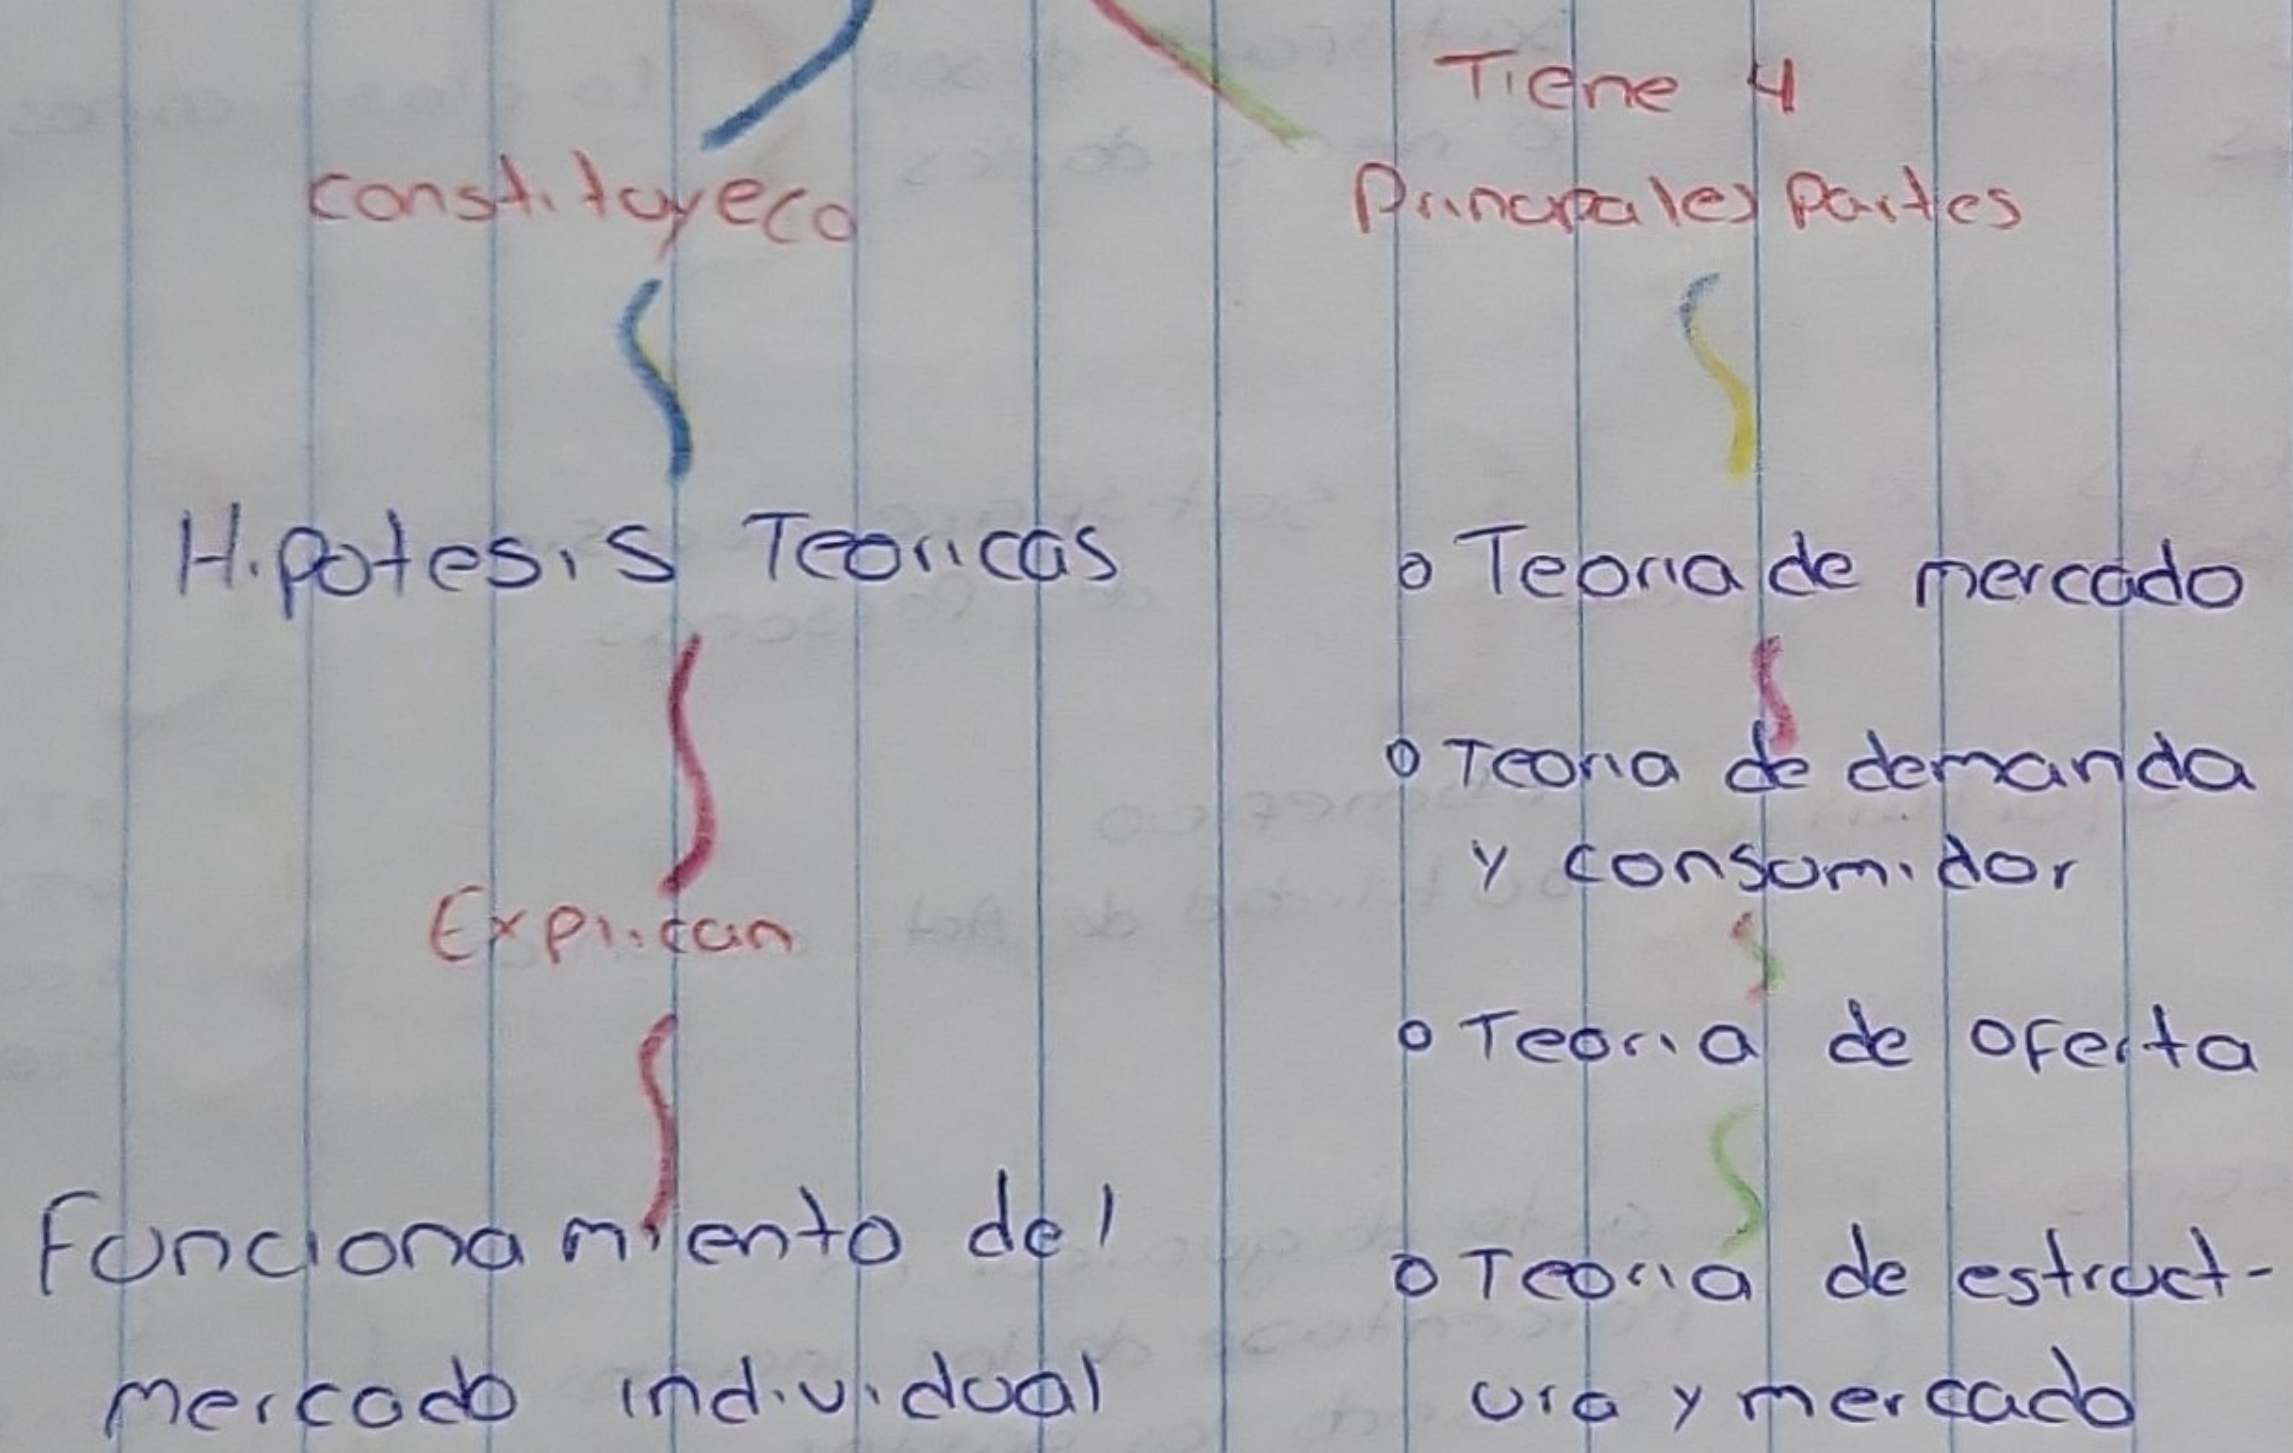 constituyeco
Hipotesis Teoricas
Explican
Funcionamiento del
mercado individual
Tiene 4
Principales Partes
o Teoria de mercado
o Teoria de demanda
y consumidor
o Teoria de oferta
o Teoria de estruct-
ura y mercado